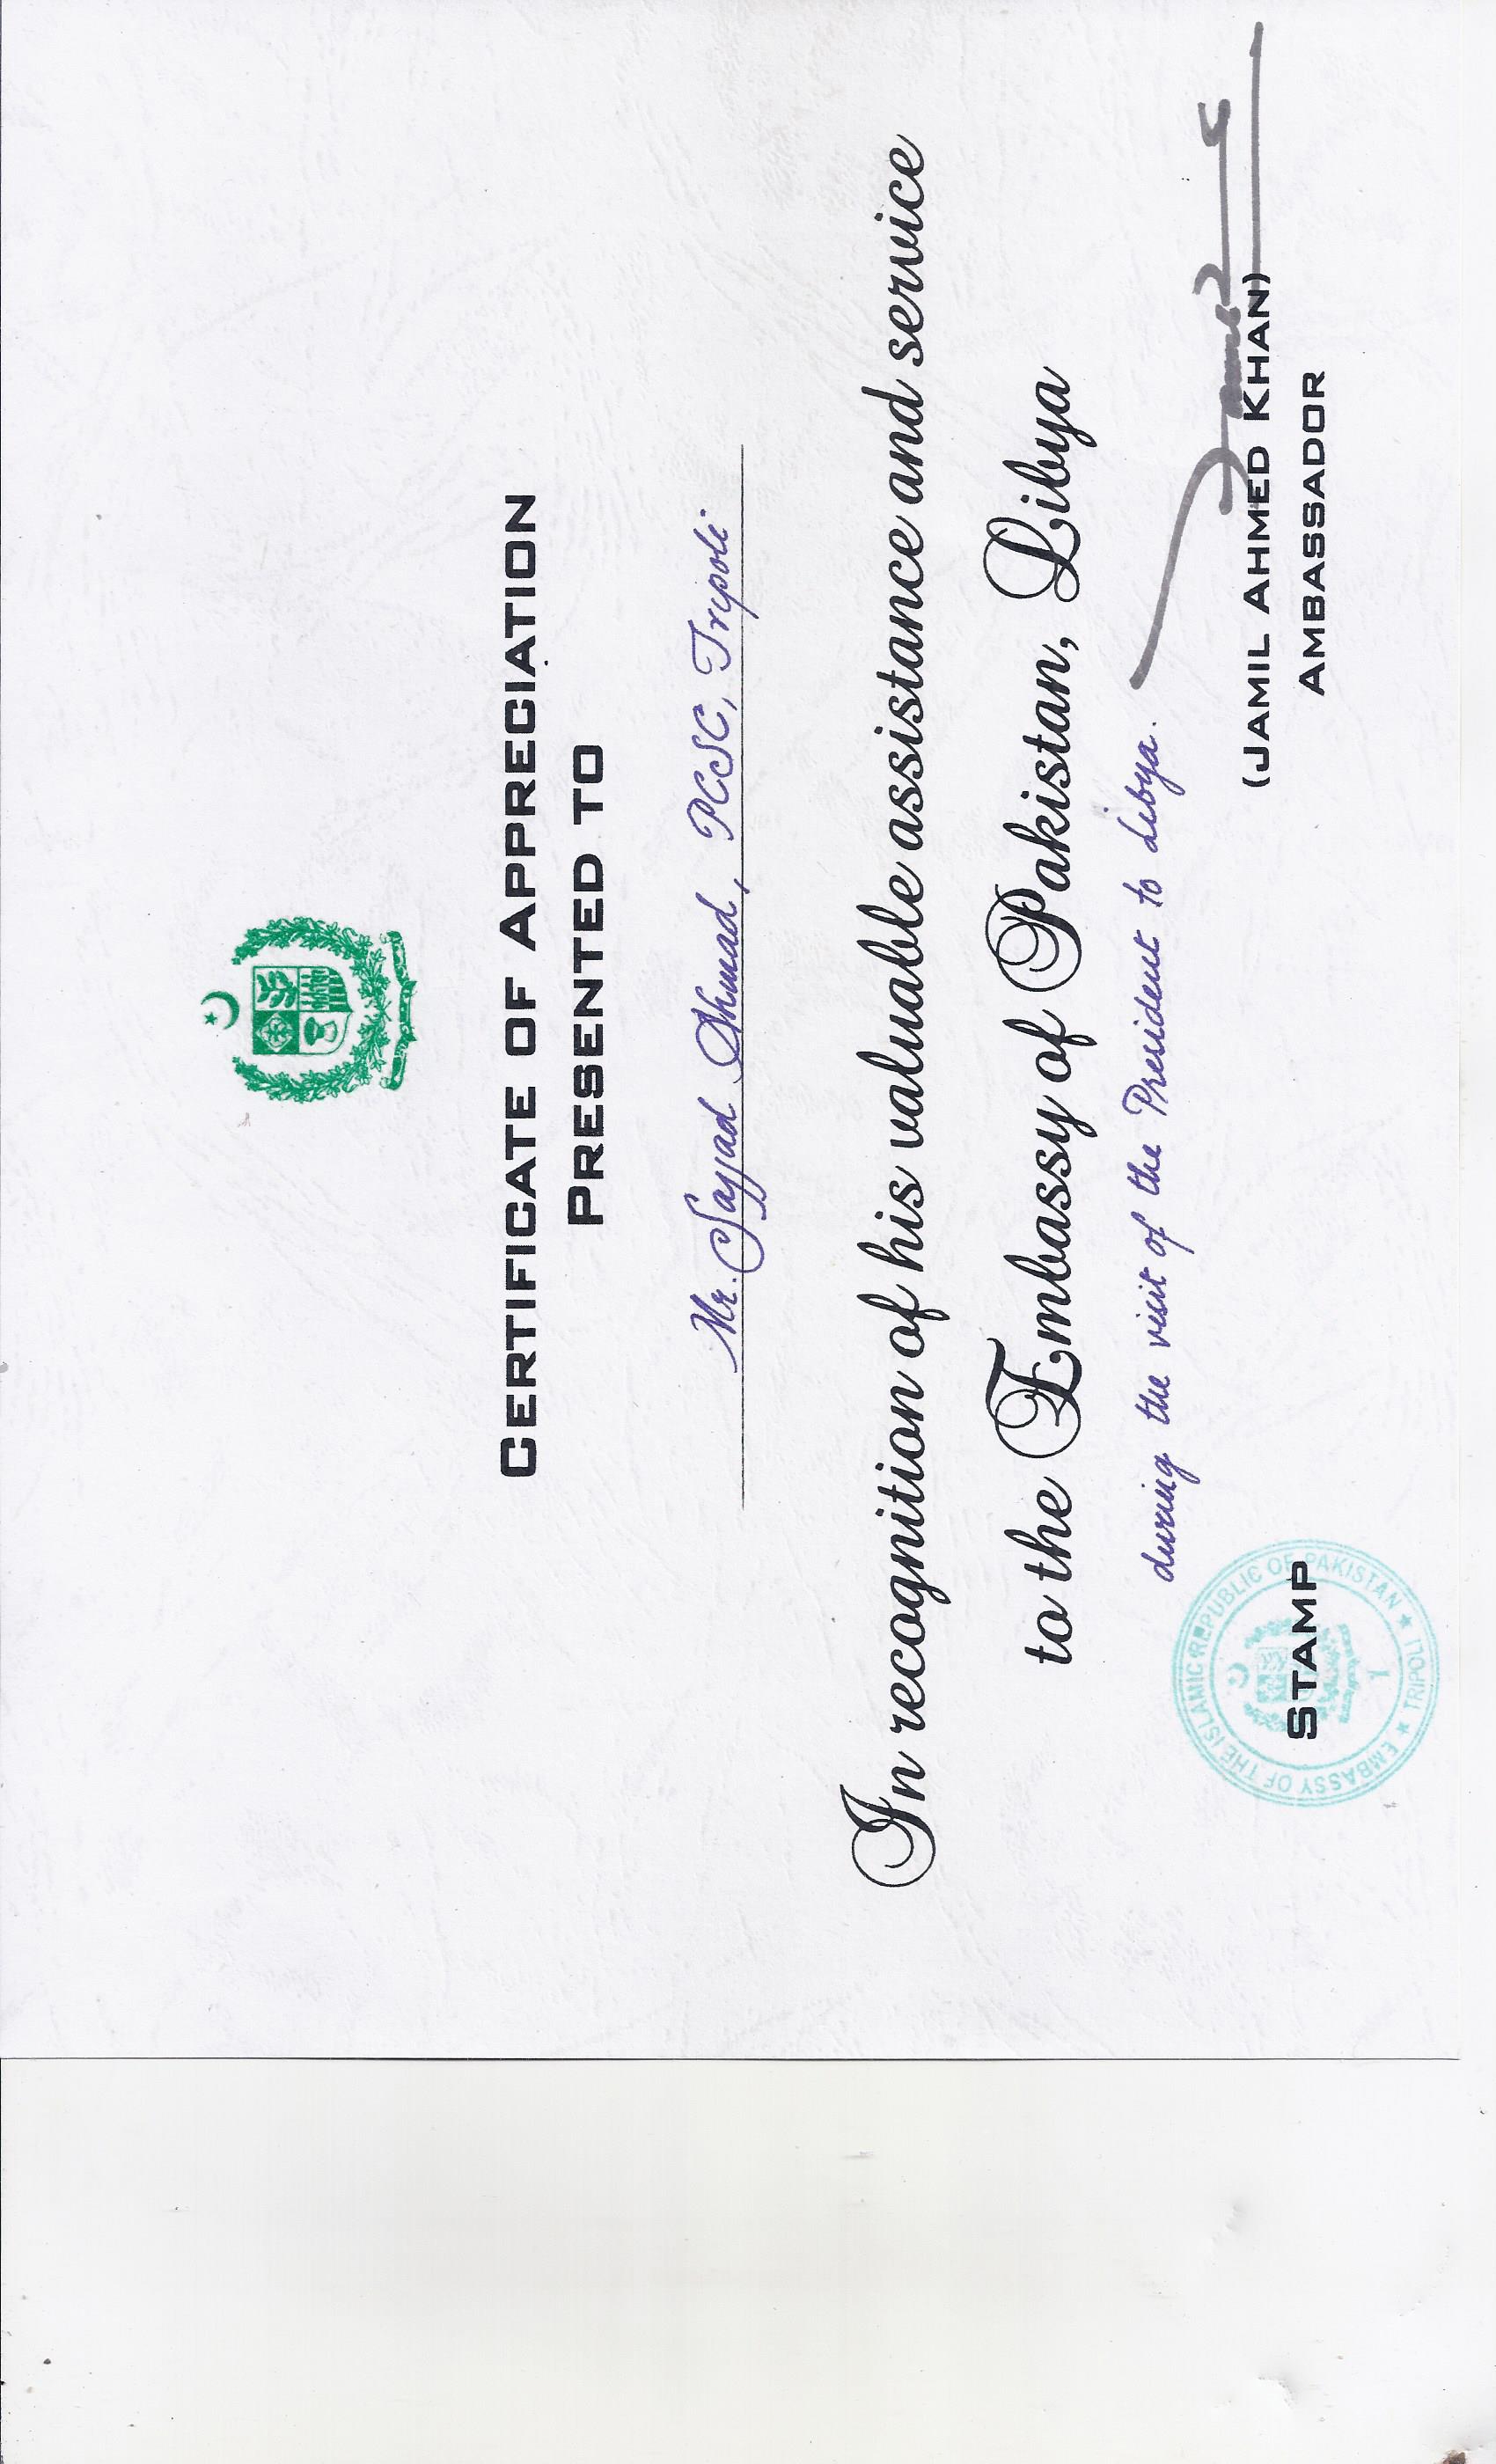 CERTIFICATE OF APPRECIATION
PRESENTED TO
Mr. Sajjad Ahmad, PCSC, Tripoli
In recognition of his valuable assistance and service
to the Embassy of Pakistan, Libya
during the visit of the President to Libya.
(JAMIL AHMED KHAN)
AMBASSADOR
STAMP
EMBASSY OF THE ISLAMIC REPUBLIC OF PAKISTAN ★ TRIPOLI ★
1